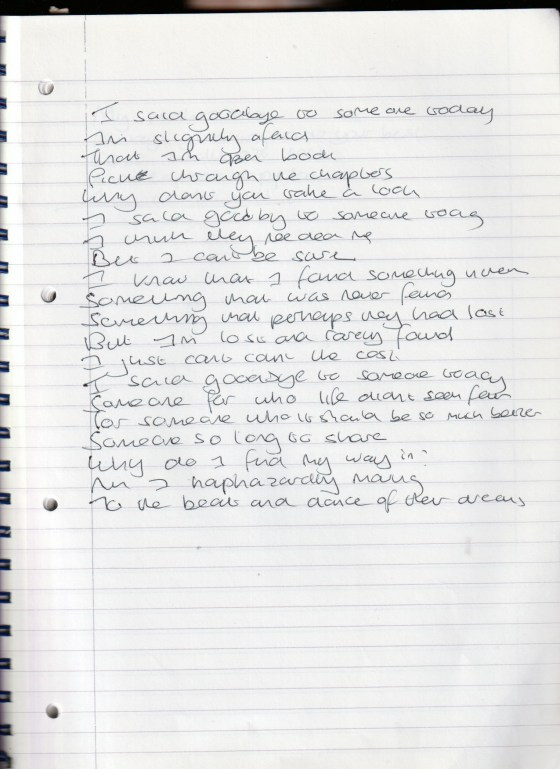 I said goodbye to someone today
Im slightly afraid
that Im open book
Picke through the chapters
Why dont you take a look
I said goodby to someone today
I think they needed me
But I cant be sure
I know that I found something when
Something that was never found
Something that perhaps they had lost
But Im lost and rarely found
I just cant count the cost
I said goodbye to someone today
Someone for who life didnt seem fair
For someone who it should be so much better
Someone so long to share
Why do I find my way in?
I haphazardly
To the beat and dance of their dreams